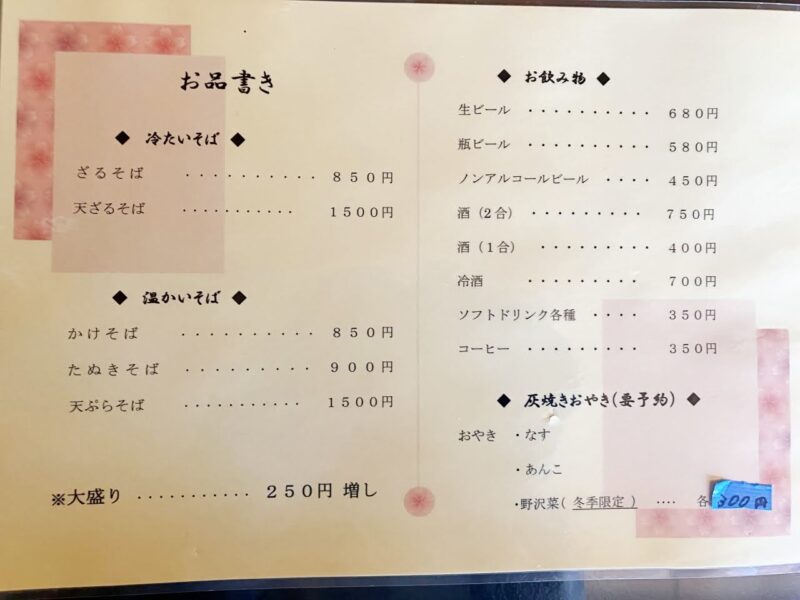 お品書き
◆ 冷たいそば ◆
ざるそば ・・・・・・・・・・ 850円
天ざるそば ・・・・・・・・・・・ 1500円
◆ 温かいそば ◆
かけそば ・・・・・・・・・・ 850円
たぬきそば ・・・・・・・・・ 900円
天ぷらそば ・・・・・・・・・・・ 1500円
※大盛り ・・・・・・・・・・・ 250円 増し
◆ お飲み物 ◆
生ビール ・・・・・・・・・・ 680円
瓶ビール ・・・・・・・・・・ 580円
ノンアルコールビール ・・・・ 450円
酒（2合） ・・・・・・・・・ 750円
酒（1合） ・・・・・・・・・ 400円
冷酒 ・・・・・・・・・ 700円
ソフトドリンク各種 ・・・・ 350円
コーヒー ・・・・・・・・・ 350円
◆ 灰焼きおやき(要予約) ◆
おやき ・なす
・あんこ
・野沢菜( 冬季限定 ) ・・・・ 各300円